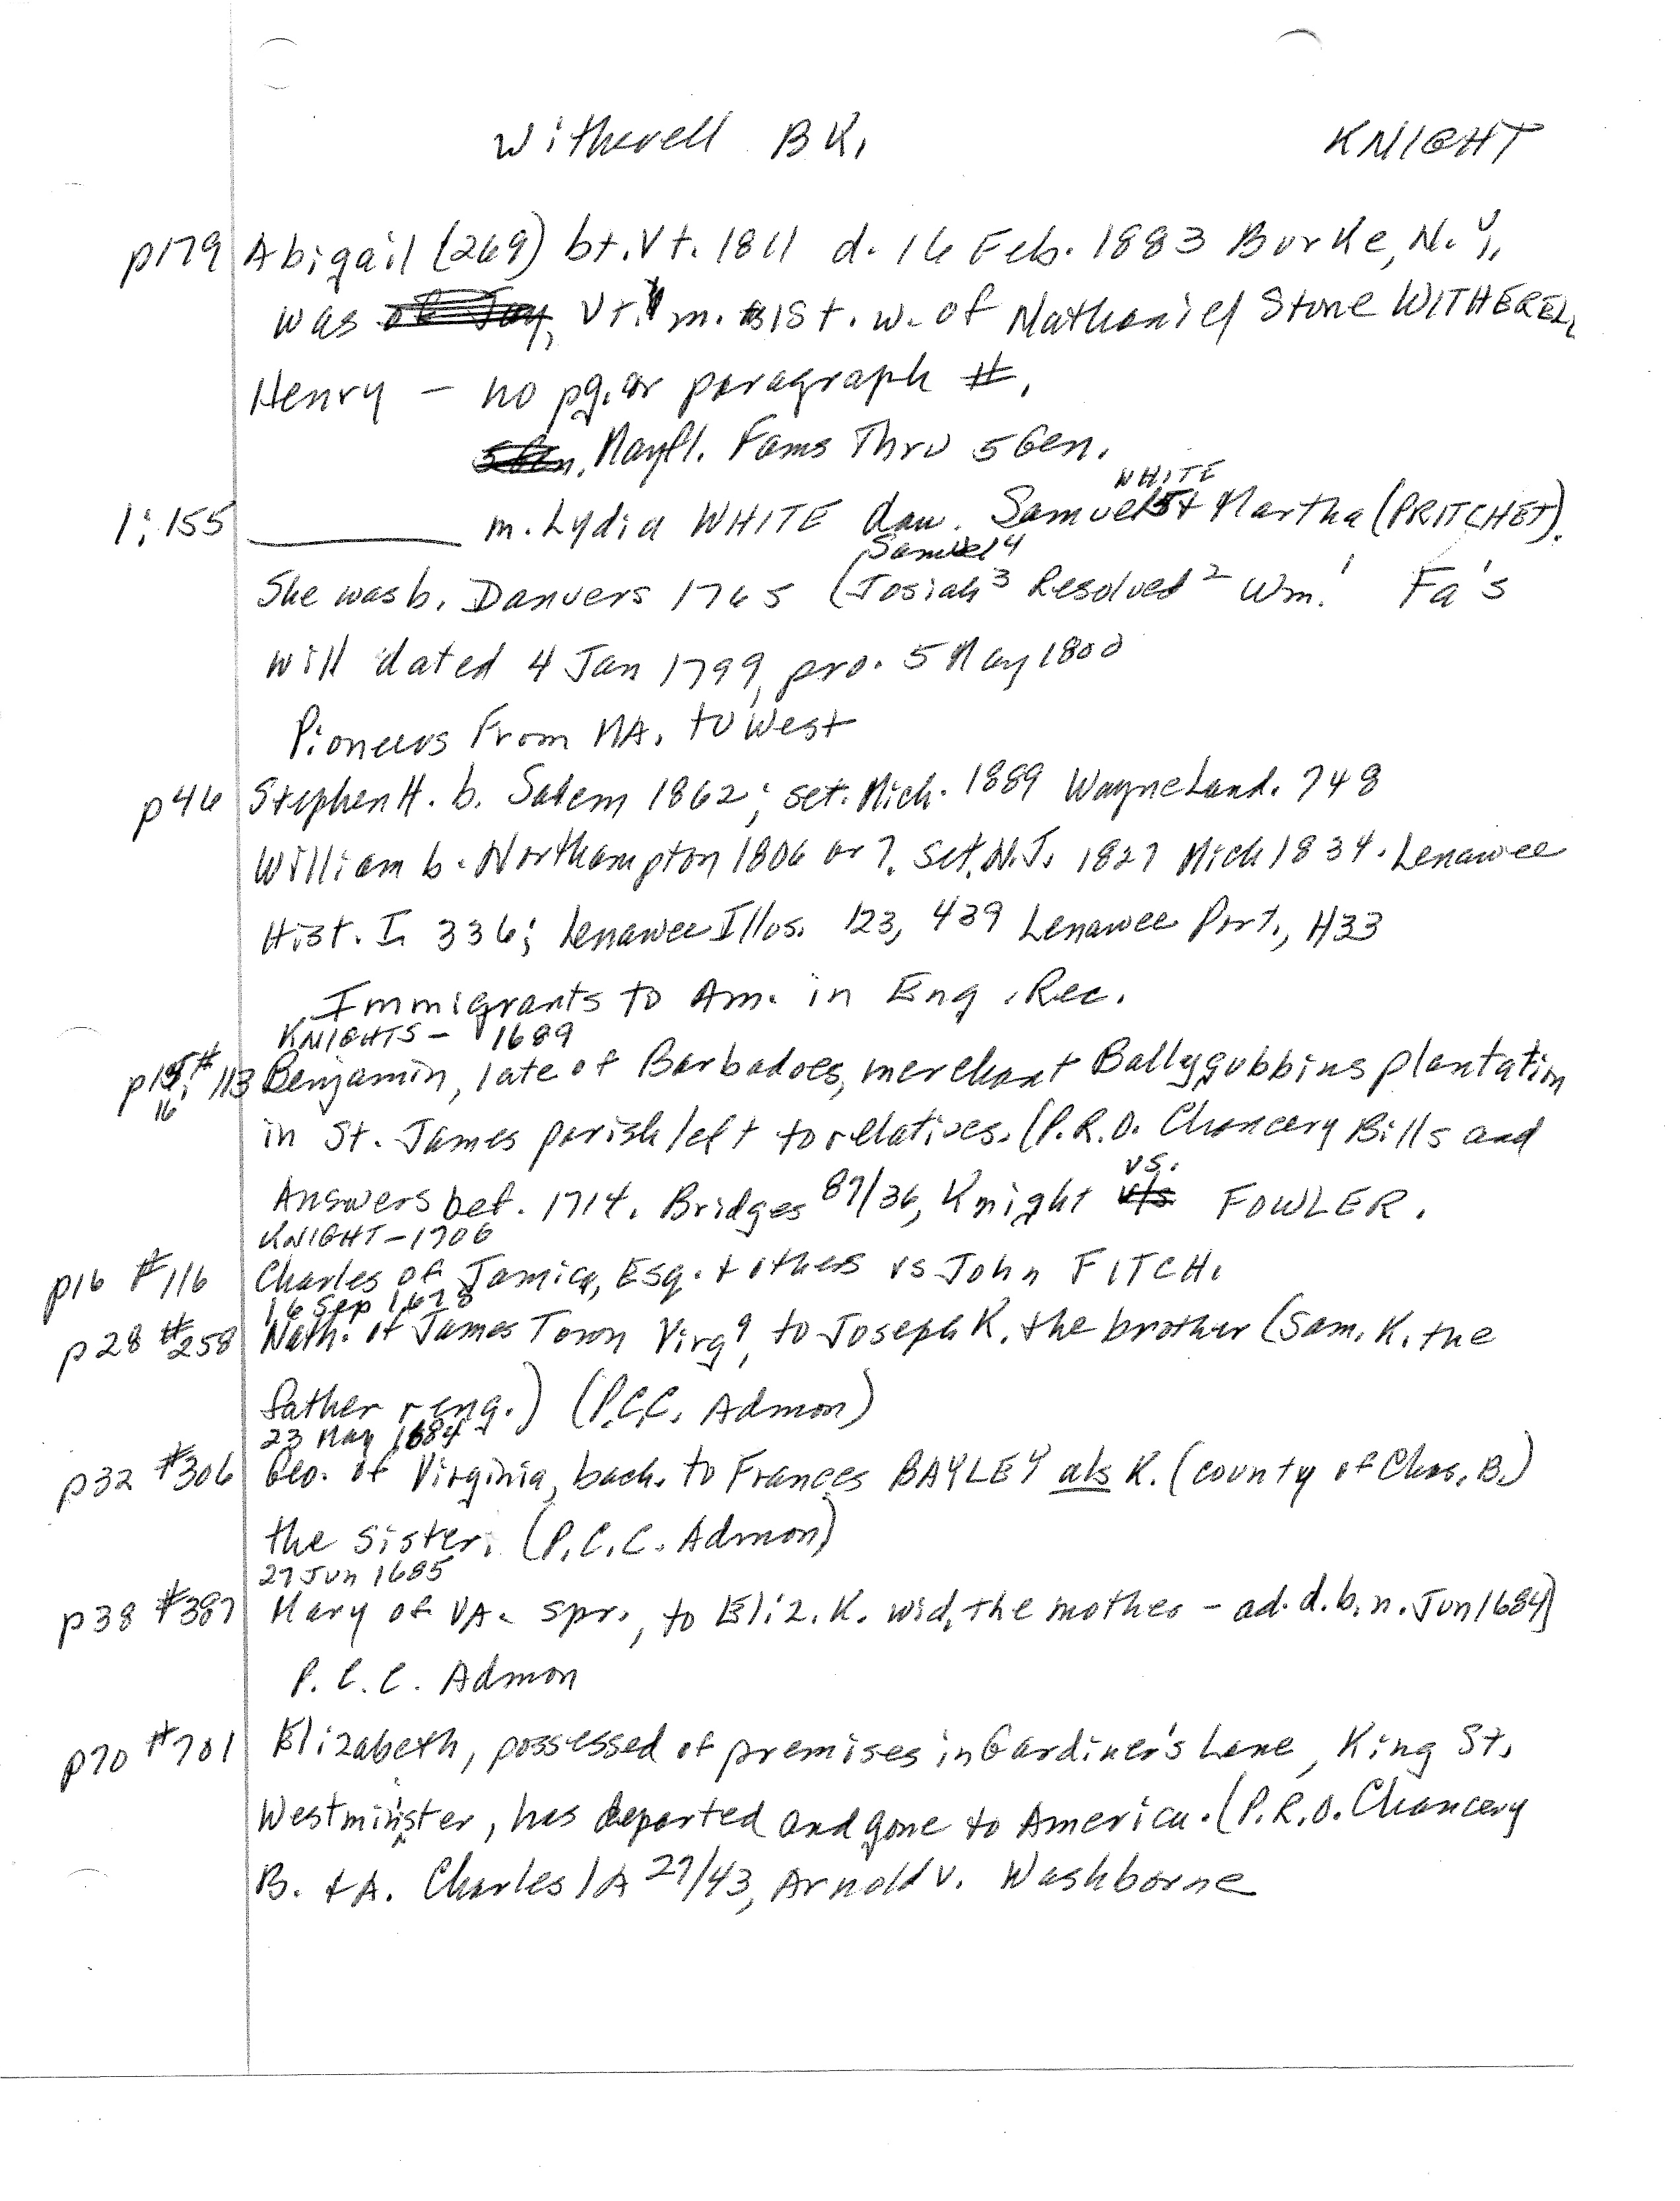 Witherell BK. KNIGHT
p179 Abigail (269) bt. Vt. 1811 d. 16 Feb. 1883 Burke, N.Y.
was of Jay, Vt. m. 1st. w. of Nathaniel Stone WITHEREL
Henry — no pg. or paragraph #.
5 Gen. Mayfl. Fams Thru 5 Gen.
WHITE
1:155 ______ m. Lydia WHITE dau. Samuel5 + Martha (PRITCHET).
Samuel4
She was b. Danvers 1765 (Josiah3 Resolved2 Wm.1 Fa's
will dated 4 Jan 1799, pro. 5 May 1800
Pioneers From MA. to West
p46 Stephen H. b. Salem 1862; set. Mich. 1889 Wayne Land. 748
William b. Northampton 1806 or 7. set. N.J. 1827 Mich 1834. Lenawee
Hist. I. 336; Lenawee Illus. 123, 439 Lenawee Port., H33
Immigrants to Am. in Eng. Rec.
KNIGHTS — 1689
p15, # 113 Benjamin, late of Barbadoes, merchant Ballygubbins plantation
16
in St. James parish left to relatives. (P.R.O. Chancery Bills and
vs.
Answers bef. 1714. Bridges 87/36, Knight v/s FOWLER.
KNIGHT — 1706
p16 #116 Charles of Jamica, Esq. + others vs John FITCH.
16 Sep 1678
p28 #258 Nath. of James Town Virga, to Joseph K. the brother (Sam. K. the
father reng.) (P.C.C. Admon)
23 May 1684
p32 #306 Geo. of Virginia, bach. to Frances BAYLEY als K. (county of Chas. B.)
the sister. (P.C.C. Admon)
27 Jun 1685
p38 #387 Mary of VA. spr., to Eliz. K. wid, the mother – ad. d.b.n. Jun 1684)
P.C.C. Admon
p70 #701 Elizabeth, possessed of premises in Gardiner's Lane, King St,
Westminister, has departed and gone to America. (P.R.O. Chancery
B. + A. Charles 1 A 27/43, Arnold v. Washborne